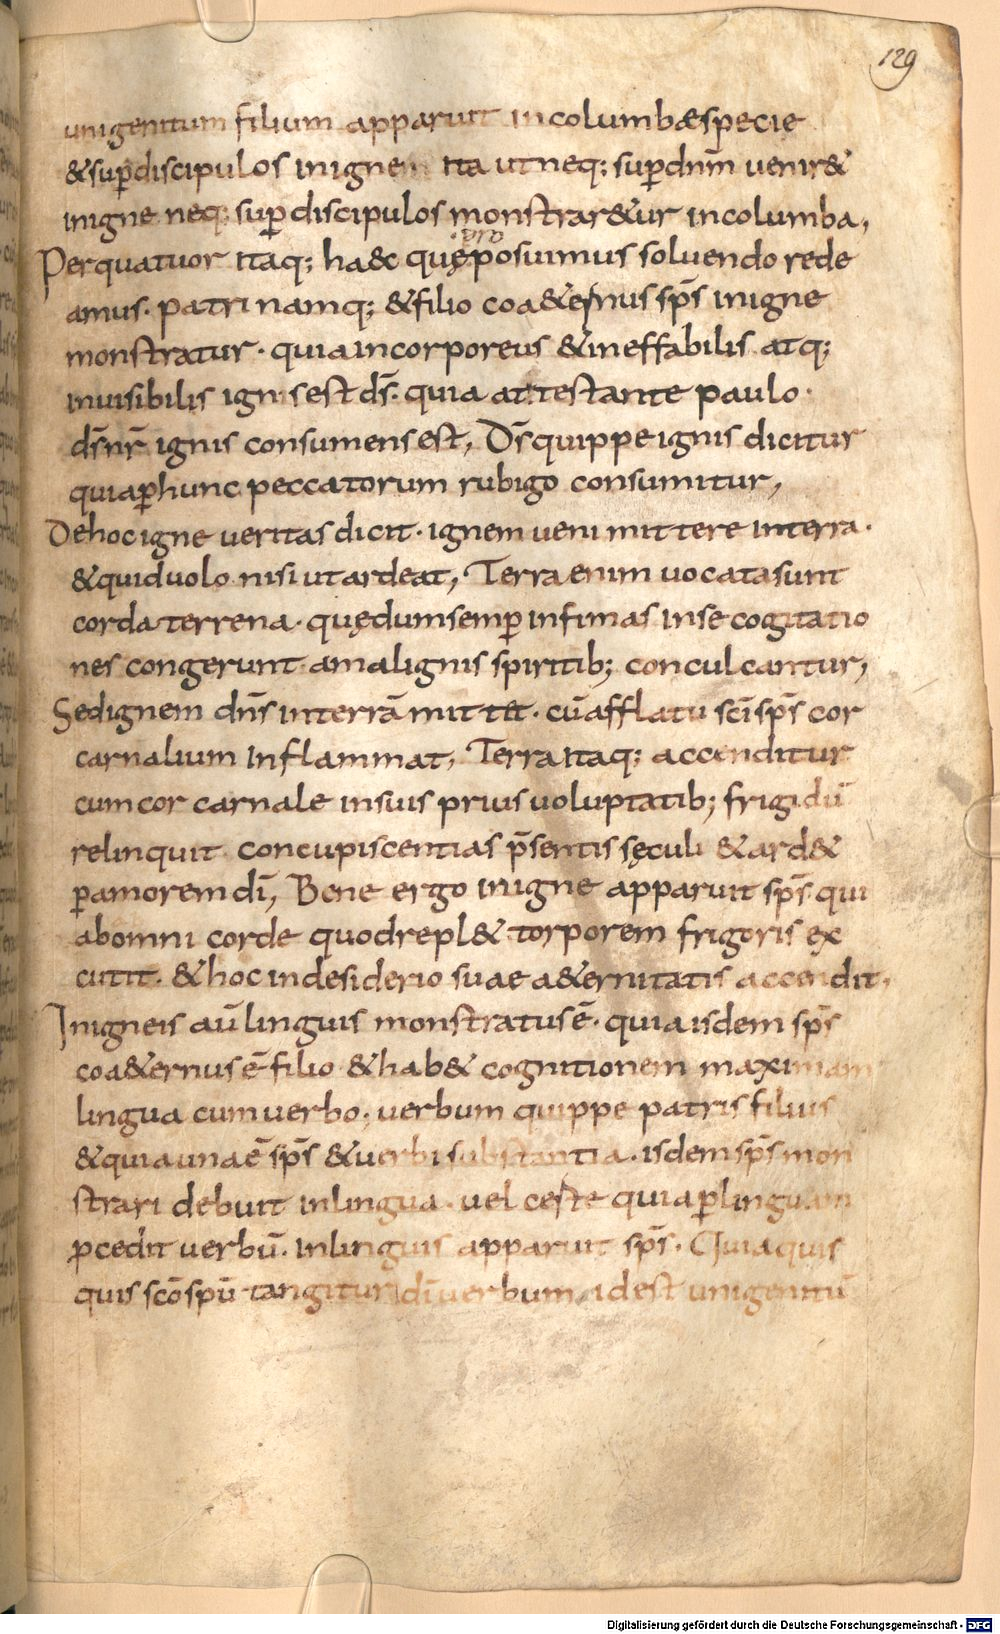 129
unigenitum filium apparuit in columbae specie
& sup̄ discipulos in ignem ita ut neq; sup̄ dn̄m uenir&
in igne neq; sup̄ discipulos monstrar&ur in columba,
Per quatuor itaq; haec quę pro posuimus soluendo rede
amus. patri namq; & filio coa&ernus sp̄s in igne
monstratur. quia incorporeus & ineffabilis atq;
inuisibilis ignis est ds̄. quia attestante paulo.
ds̄ nr̄ ignis consumens est, Ds̄ quippe ignis dicitur
quia p̄ hunc peccatorum rubigo consumitur,
De hoc igne ueritas dicit. ignem ueni mittere in terra.
& quid uolo nisi ut ardeat, Terra enim uocata sunt
corda terrena. quę dum semp̄ infimas in se cogitatio
nes congerunt. a malignis spiritib; conculcantur,
Sed ignem dn̄s in terrā mittit. cū afflatu sc̄i sp̄s cor
carnalium inflammat, Terra itaq; accenditur
cum cor carnale in suis prius uoluptatib; frigidū
relinquit concupiscentias p̄sentis sęculi & ard&
p̄ amorem dī, Bene ergo in igne apparuit sp̄s. qui
ab omni corde quod repl& torporem frigoris ex
cutit. & hoc in desiderio suae a&ernitatis accendit,
In igneis aū linguis monstratus ē. quia isdem sp̄s
coa&ernus ē filio & hab& cognitionem maximam
lingua cum uerbo; uerbum quippe patris filius
& quia una ē sp̄s & uerbi substantia. isdem sp̄s mon
strari debuit in lingua. uel certe quia p̄ linguam
p̄cedit uerbū. in linguis apparuit sp̄s. Quia quis
quis sc̄o spū tangitur dī uerbum id est unigenitū
Digitalisierung gefördert durch die Deutsche Forschungsgemeinschaft - DFG